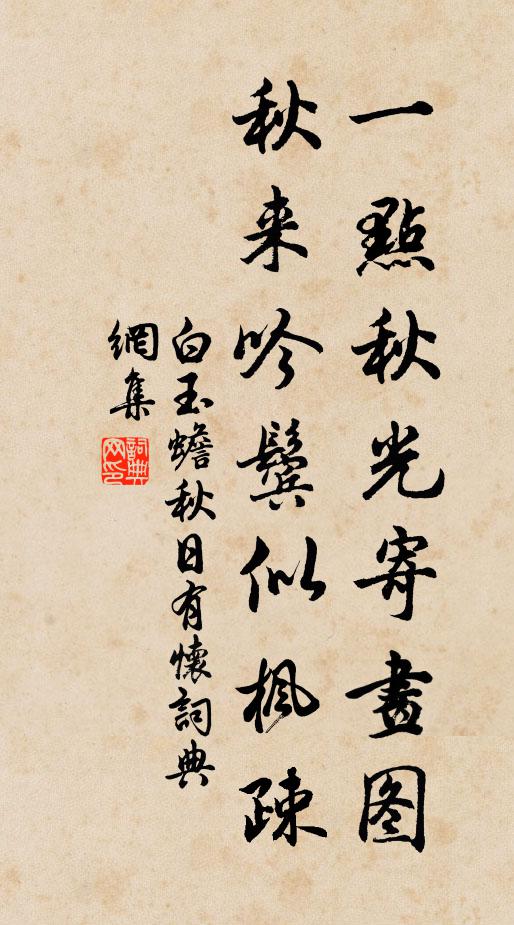 一點秋光寄畫图
秋来吟鬓似楓疎
白玉蟾秋日有懷詞典
網集
詞典
网印